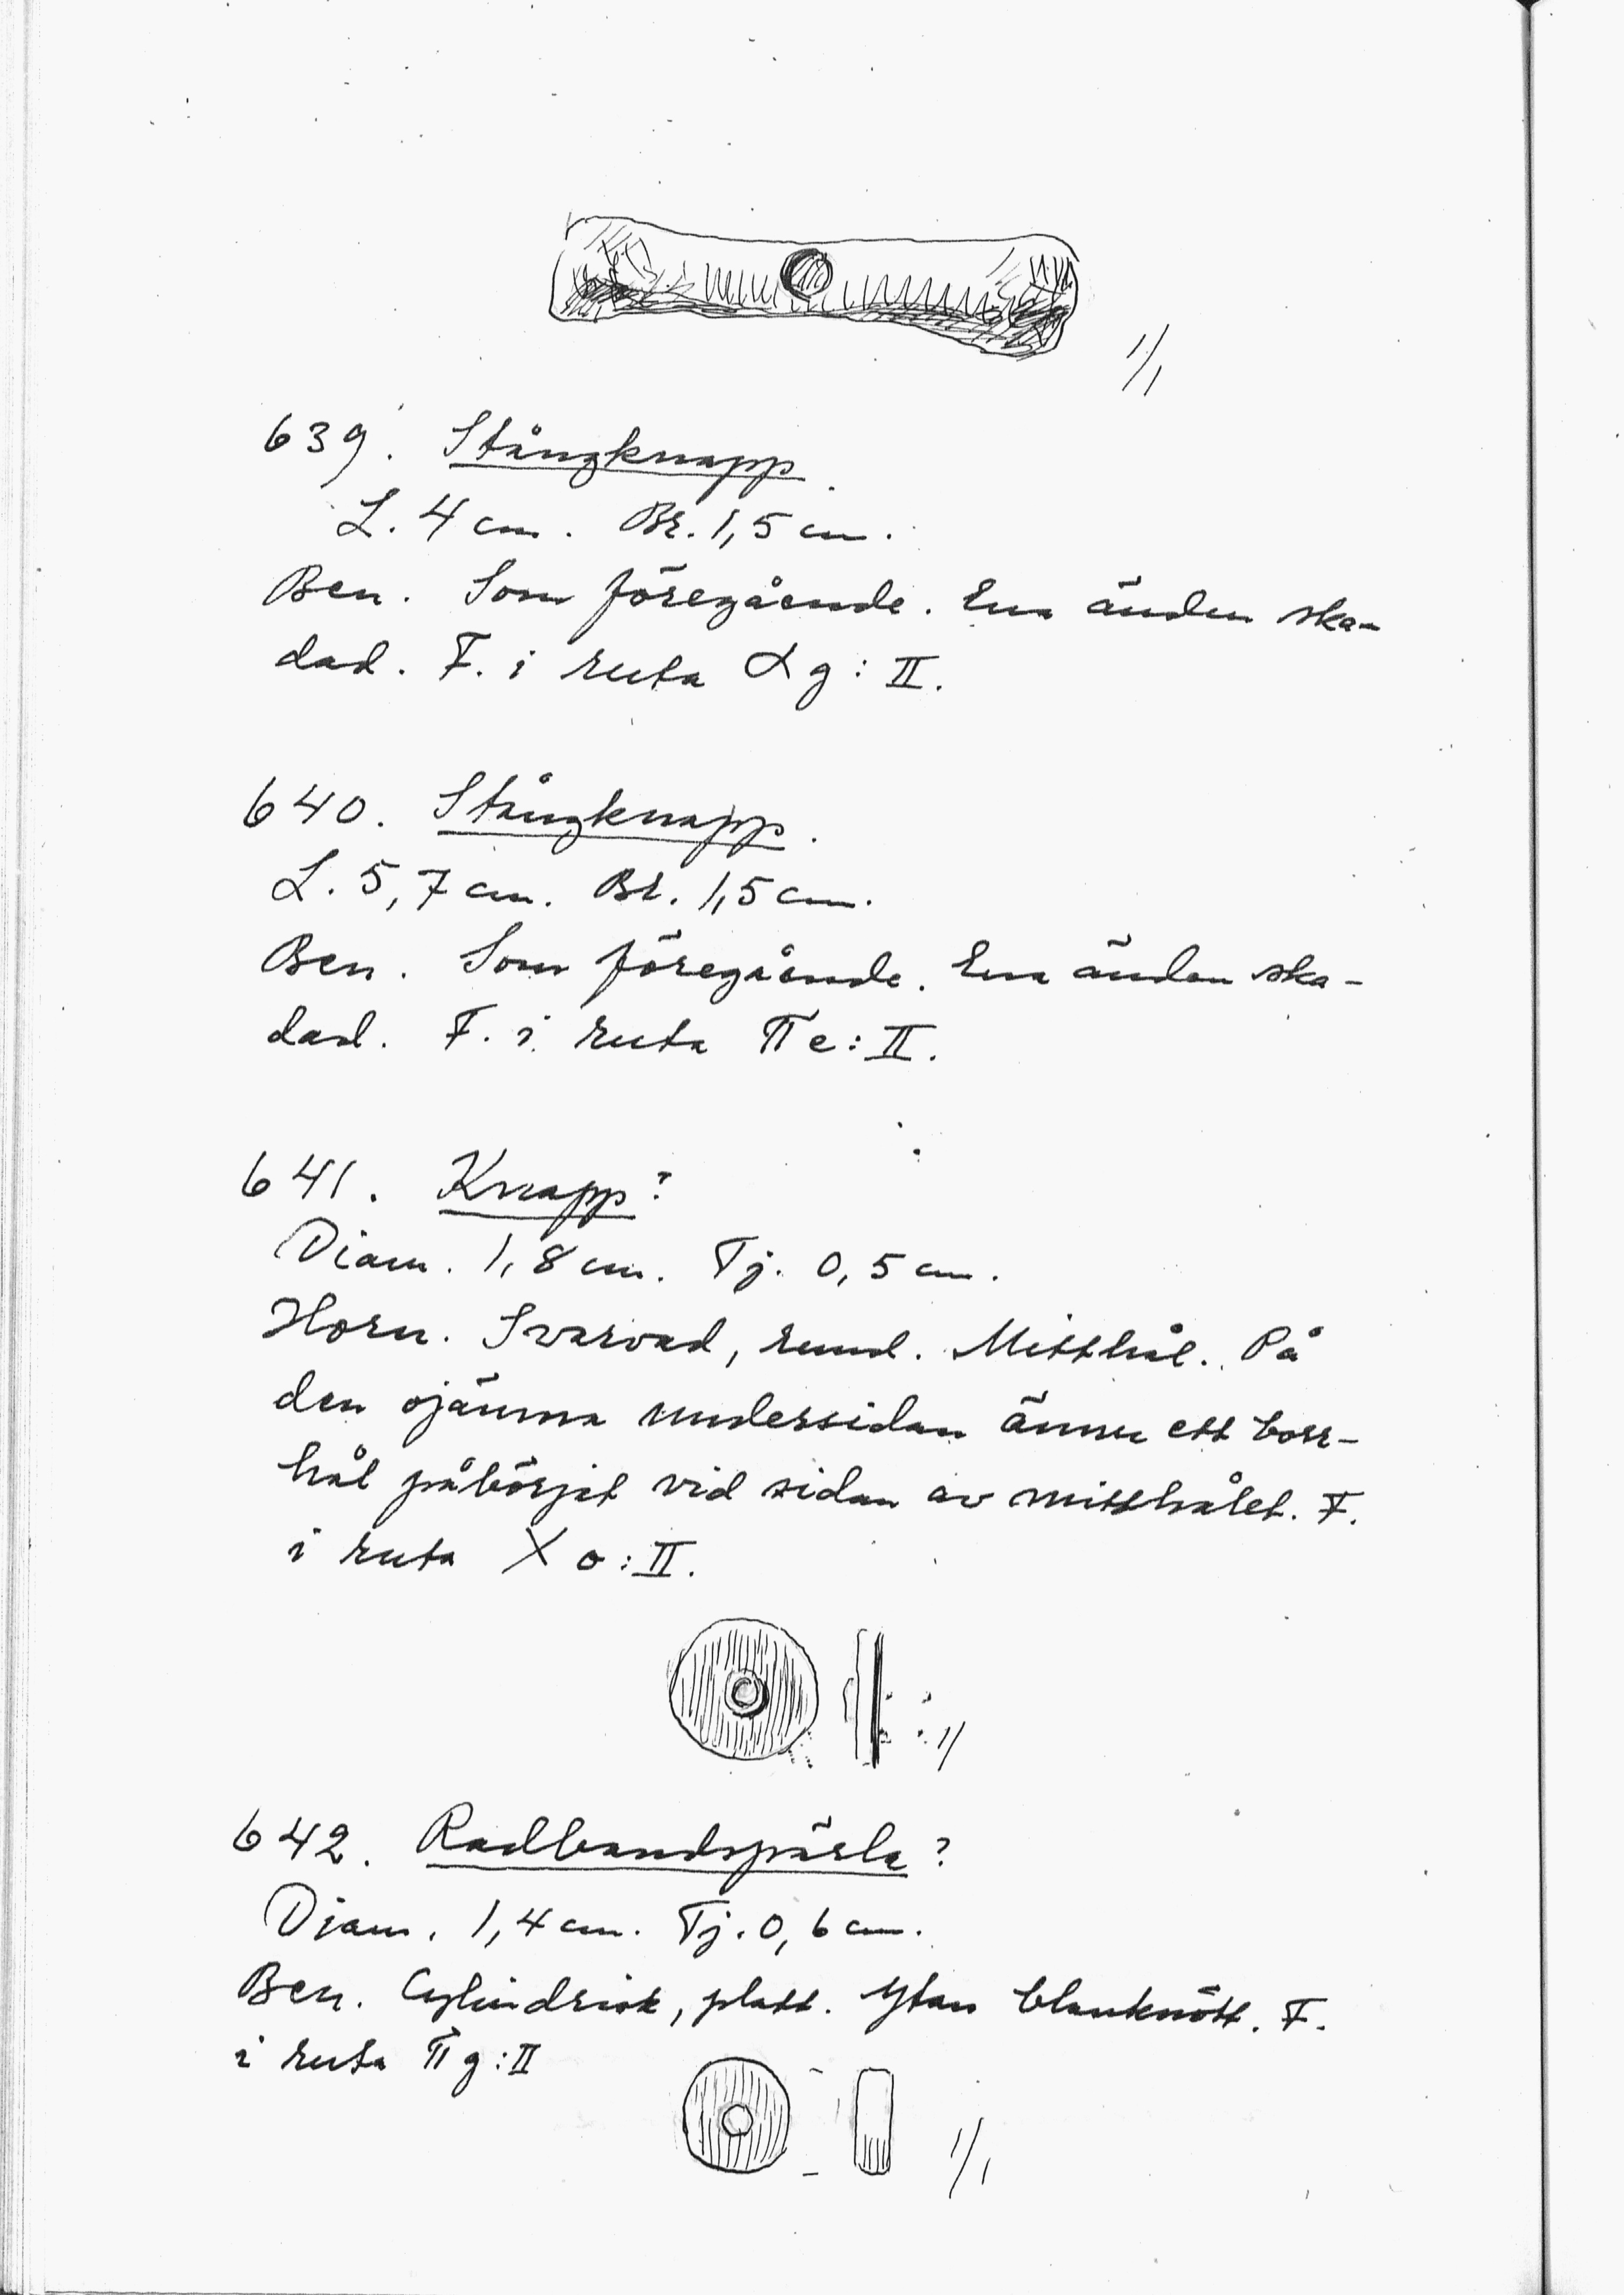 1/1
639. Stångknapp.
L. 4 cm. Br. 1,5 cm.
Ben. Som föregående. Ena änden ska-
dad. F. i ruta αg: II.
640. Stångknapp.
L. 5,7 cm. Br. 1,5 cm.
Ben. Som föregående. Ena änden ska-
dad. F. i ruta πe: II.
641. Knapp?
Diam. 1,8 cm. Tj. 0,5 cm.
Horn. Svarvad, rund. Mitthål. På
den ojämna undersidan ännu ett borr-
hål påbörjat vid sidan av mitthålet. F.
i ruta X o: II.
1/
642. Radbandspärla?
Diam. 1,4 cm. Tj. 0,6 cm.
Ben. Cylindrisk, platt. Ytan blanknött. F.
i ruta πg: II
1/1